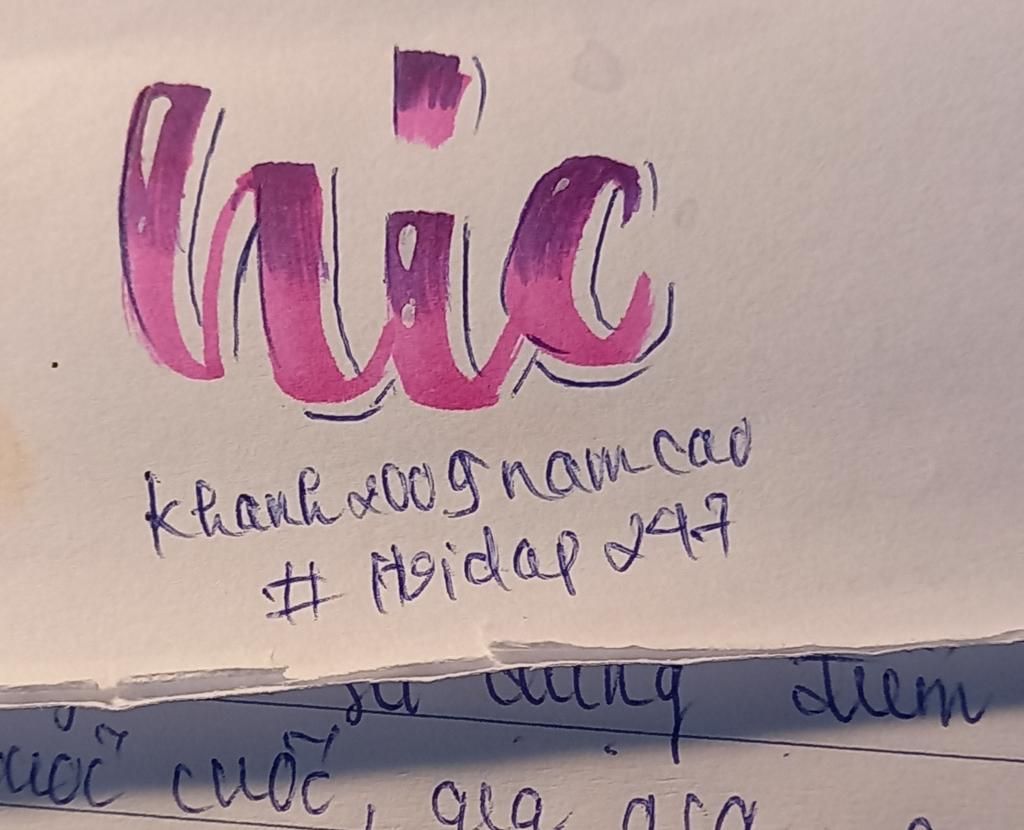 nic
khanh2009namcao
# Hoidap247
sử dụng điểm
cuốc cuốc, gia gia